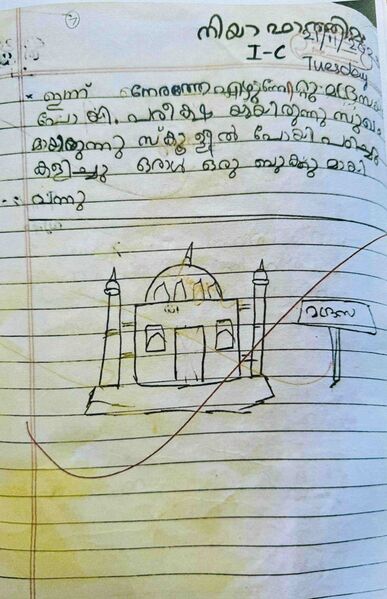 നിയാ ഫാത്തിമ
I-C
Tuesday
ഇന്ന് നേരത്തേ എഴുന്നേറ്റു മദ്രസയി
പോയി. പരീക്ഷ യായിരുന്നു സുഖ
മായിരുന്നു സ്കൂളിൽ പോയി പഠിച്ചു
കളിച്ചു ഒരാൾ ഒരു ബുക്കു മായി
വന്നു
മദ്രസ